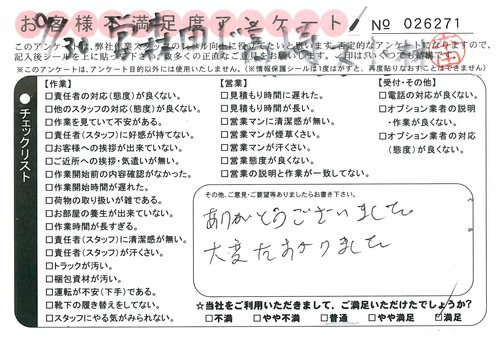 お客様不満足度アンケート
No 026271
9/30
このアンケートは、弊社作業スタッフのレベル向上に役立てたいと思います。否定的なアンケートになりますので、
記入後シールを上に貼って
※このアンケートは、アンケート目的以外には使用いたしません。(※情報保護シールは1度はがすと、再度貼りなおすことはできません)
チェックリスト
【作業】
□責任者の対応(態度)が良くない。
□他のスタッフの対応(態度)が良くない。
□作業を見ていて不安がある。
□責任者(スタッフ)に好感が持てない。
□お客様への挨拶が出来ていない。
□ご近所への挨拶・気遣いが無い。
□作業開始前の内容確認がなかった。
□作業開始時間が遅れた。
□荷物の取り扱いが雑である。
□お部屋の養生が出来ていない。
□作業時間が長すぎる。
□責任者(スタッフ)に清潔感が無い。
□責任者(スタッフ)が汗くさい。
□トラックが汚い。
□梱包資材が汚い。
□運転が不安(下手)である。
□靴下の履き替えをしてない。
□スタッフにやる気がみられない。
【営業】
□見積もり時間に遅れた。
□見積もり時間が長い。
□営業マンに清潔感が無い。
□営業マンが煙草くさい。
□営業マンが汗くさい。
□営業態度が良くない。
□営業の説明と作業が一致してない。
【受付・その他】
□電話の対応が良くない。
□オプション業者の説明
・作業が良くない。
□オプション業者の対応
(態度)が良くない。
その他、ご意見・ご要望等ありましたらお書き下さい。
ありがとうございました
大変たすかりました
☆当社をご利用いただきまして、ご満足いただけたでしょうか?
□不満 □やや不満 □普通 □やや満足 ☑満足